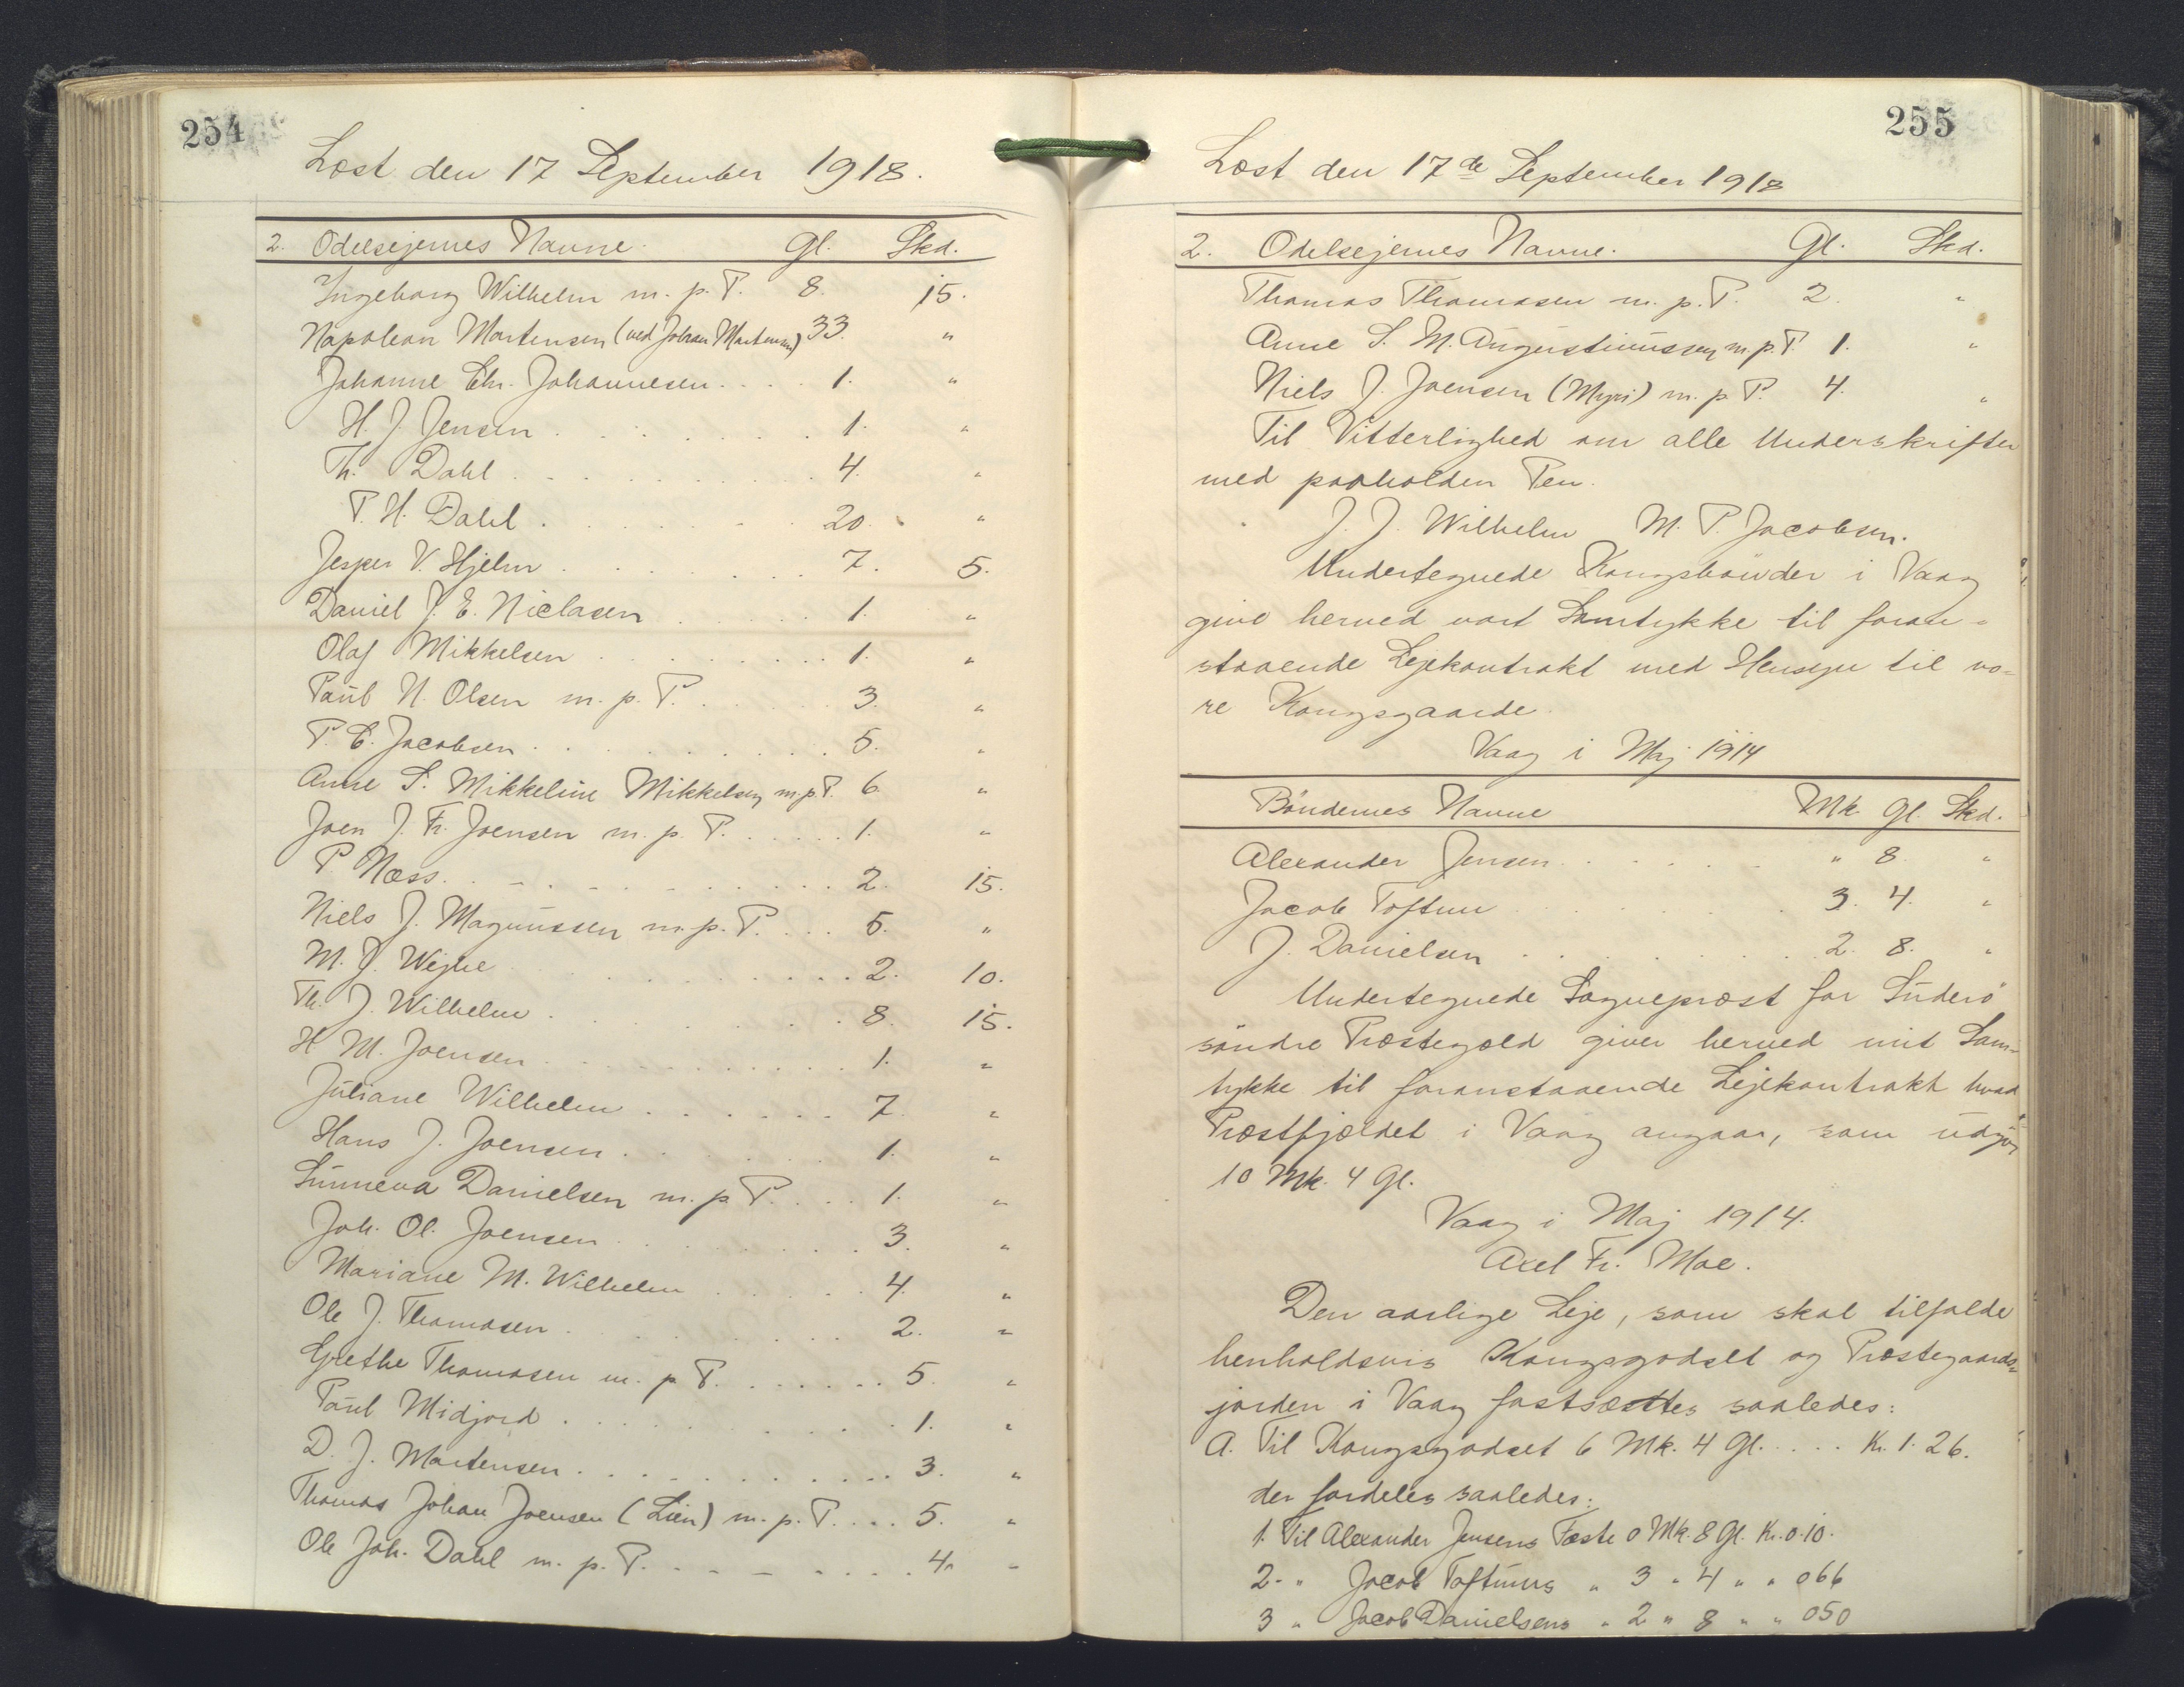 254
Læst den 17 September 1918.
2. Odelsejernes Navne. Gl. Skd.
Ingeborg Wilhelm m. p. P. 8. 15.
Napoleon Mortensen (ved Johan Mortensen) 33. "
Johanne Chr. Johannesen . . . . 1. "
H. J. Jensen . . . . . . . 1. "
Th. Dahl . . . . . . . . 4. "
P. H. Dahl . . . . . . . 20. "
Jesper V. Hjelm . . . . . . . 7. 5.
Daniel J. E. Niclasen . . . . . 1. "
Olaf Mikkelsen . . . . . . . 1. "
Paul N. Olsen m. p. P. . . . . . 3. "
P. E. Jacobsen . . . . . . . . 5. "
Anne S. Mikkeline Mikkelsen m. p. P. 6. "
Joen J. Fr. Joensen m. p. P. . . . . . 1. "
P. Næss. . . . . . . . . . . 2. 15.
Niels J. Magnussen m. p. P. . . . 5. "
M. J. Wejhe . . . . . . . . 2. 10.
Th. J. Wilhelm . . . . . . . 8. 15.
H M. Joensen . . . . . . . . 1. "
Juliane Wilhelm . . . . . . 7. "
Hans J. Joensen . . . . . . . 1. "
Sunneva Danielsen m. p. P. . . . 1. "
Joh. Ol. Joensen . . . . . . . 3. "
Mariane M. Wilhelm . . . . . 4. "
Ole J. Thomasen . . . . . . . 2. "
Grethe Thomasen m. p P. . . . . . . 5. "
Paul Midjord . . . . . . . . 1. "
D. J. Mortensen . . . . . . . . . . 3. "
Thomas Johan Joensen (Lien) m. p. P. . . . 5. "
Ole Joh. Dahl m. p. P. . . . . . . . 4. "
255
Læst den 17de September 1918
2. Odelsejernes Navne. Gl. Skd.
Thomas Thomasen m. p. P. 2. "
Anne S. M. Augustinussen m. p. P. 1. "
Niels J. Joensen (Myri) m. p P. 4. "
Til Vitterlighed om alle Underskrifter
med paaholden Pen.
J. J. Wilhelm M. P. Jacobsen.
Undertegnede Kongsbønder i Vaag
give herved vort Samtykke til foran-
staaende Lejekontrakt med Hensyn til vo-
re Kongsgaarde.
Vaag i Maj 1914
Bøndernes Navne Mk. Gl. Skd.
Alexander Jensen . . . . . . " 8 "
Jacob Toftum . . . . . . . 3. 4. "
J. Danielsen . . . . . . . 2. 8. "
Undertegnede Sognepræst for Suderø
søndre Præstegæld giver herved mit Sam-
tykke til foranstaaende Lejekontrakt hvad
Præstfjældet i Vaag angaar, som udgør
10 Mk. 4 Gl.
Vaag i Maj 1914.
Axel Fr. Moe.
Den aarlige Leje, som skal tilfalde
henholdsvis Kongsgodset og Præstegaards-
jorden i Vaag fastsættes saaledes:
A. Til Kongsgodset 6 Mk. 4 Gl. . . . . Kr. 1. 26.
der fordeles saaledes:
1. Til Alexander Jensens Fæste 0 Mk. 8 Gl. Kr. 0.10.
2. " Jacob Toftums " 3 " 4 " " 066
3 " Jacob Danielsens " 2 " 8 " " 050